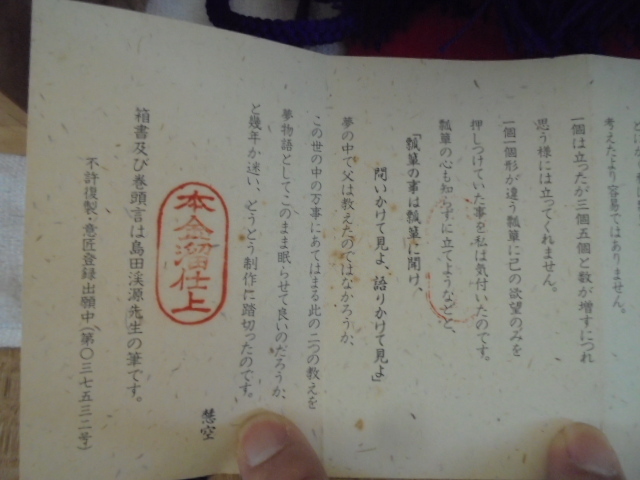 考えたより容易ではありません。
一個は立ったが三個五個と数が増すにつれ
思う様には立ってくれません。
一個一個形が違う瓢箪に己の欲望のみを
押しつけていた事を私は気付いたのです。
瓢箪の心も知らずに立てようなどと、
「瓢箪の事は瓢箪に聞け、
問いかけて見よ、語りかけて見よ」
夢の中で父は教えたのではなかろうか、
この世の中の万事にあてはまる此の二つの教えを
夢物語としてこのまま眠らせて良いのだろうか、
と幾年か迷い、とうとう制作に踏切ったのです。
慧空
本金溜仕上
箱書及び巻頭言は島田渓源先生の筆です。
不許復製・意匠登録出願中(第〇三七五三二号)